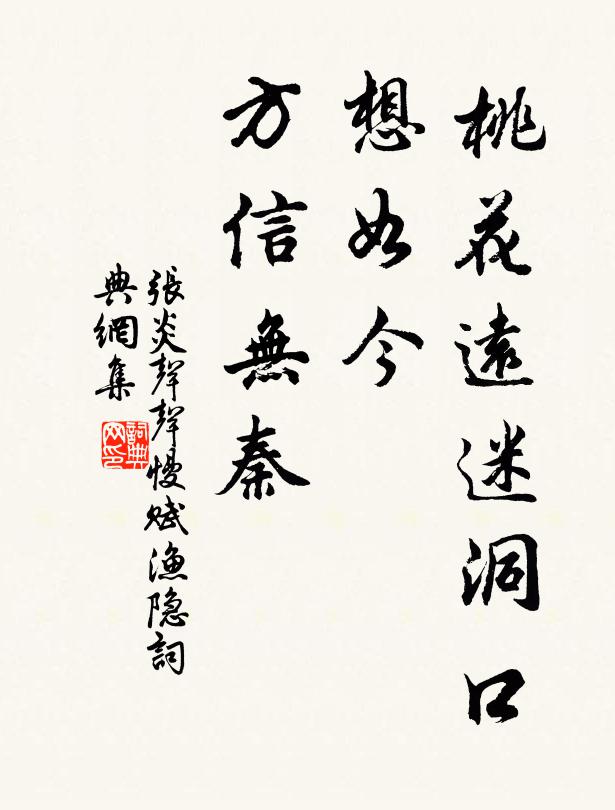 桃花遠迷洞口
想如今
方信無秦
張炎聲聲慢賦漁隐詞
典網集
詞典
网印